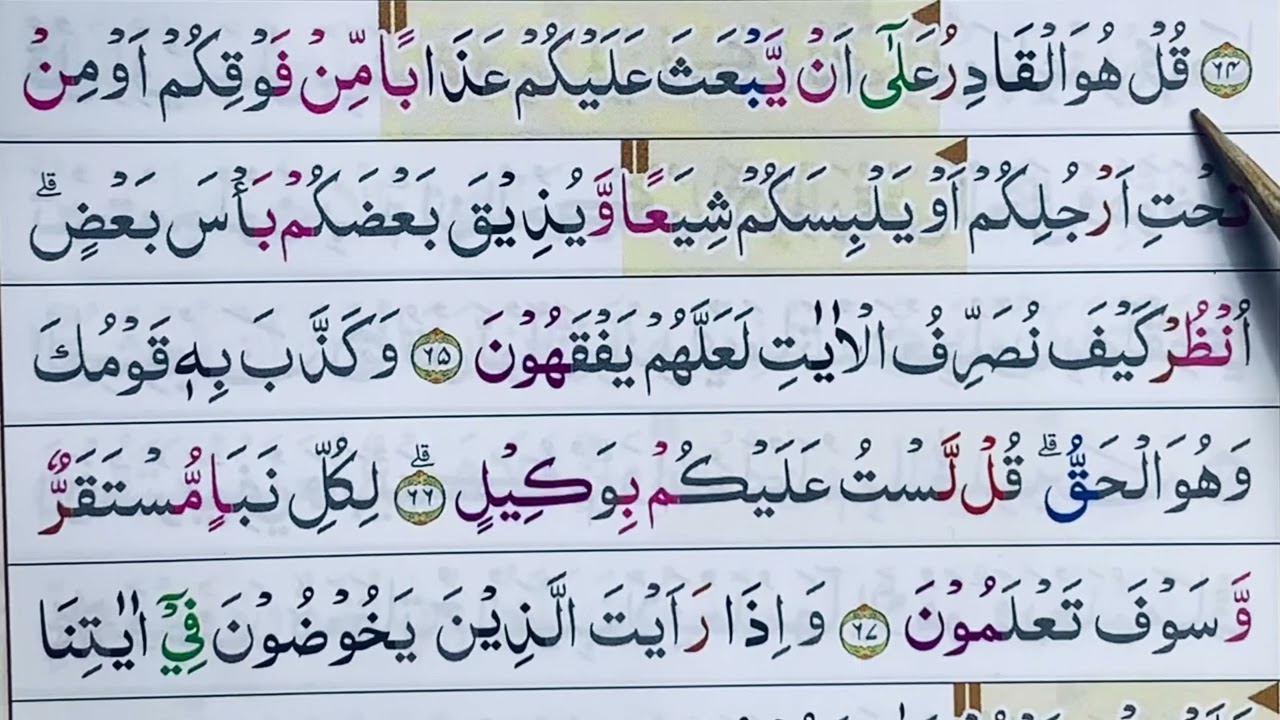 ﴿۶۴﴾ قُلْ هُوَ الْقَادِرُ عَلٰٓى اَنْ يَّبْعَثَ عَلَيْكُمْ عَذَابًا مِّنْ فَوْقِكُمْ اَوْ مِنْ
تَحْتِ اَرْجُلِكُمْ اَوْ يَلْبِسَكُمْ شِيَعًا وَّيُذِيْقَ بَعْضَكُمْ بَاْسَ بَعْضٍ ؕ
اُنْظُرْ كَيْفَ نُصَرِّفُ الْاٰيٰتِ لَعَلَّهُمْ يَفْقَهُوْنَ ﴿۶۵﴾ وَكَذَّبَ بِهٖ قَوْمُكَ
وَهُوَ الْحَقُّ ؕ قُلْ لَّسْتُ عَلَيْكُمْ بِوَكِيْلٍ ؕ ﴿۶۶﴾ لِكُلِّ نَبَاٍ مُّسْتَقَرٌّ
وَّسَوْفَ تَعْلَمُوْنَ ﴿۶۷﴾ وَاِذَا رَاَيْتَ الَّذِيْنَ يَخُوْضُوْنَ فِيْٓ اٰيٰتِنَا